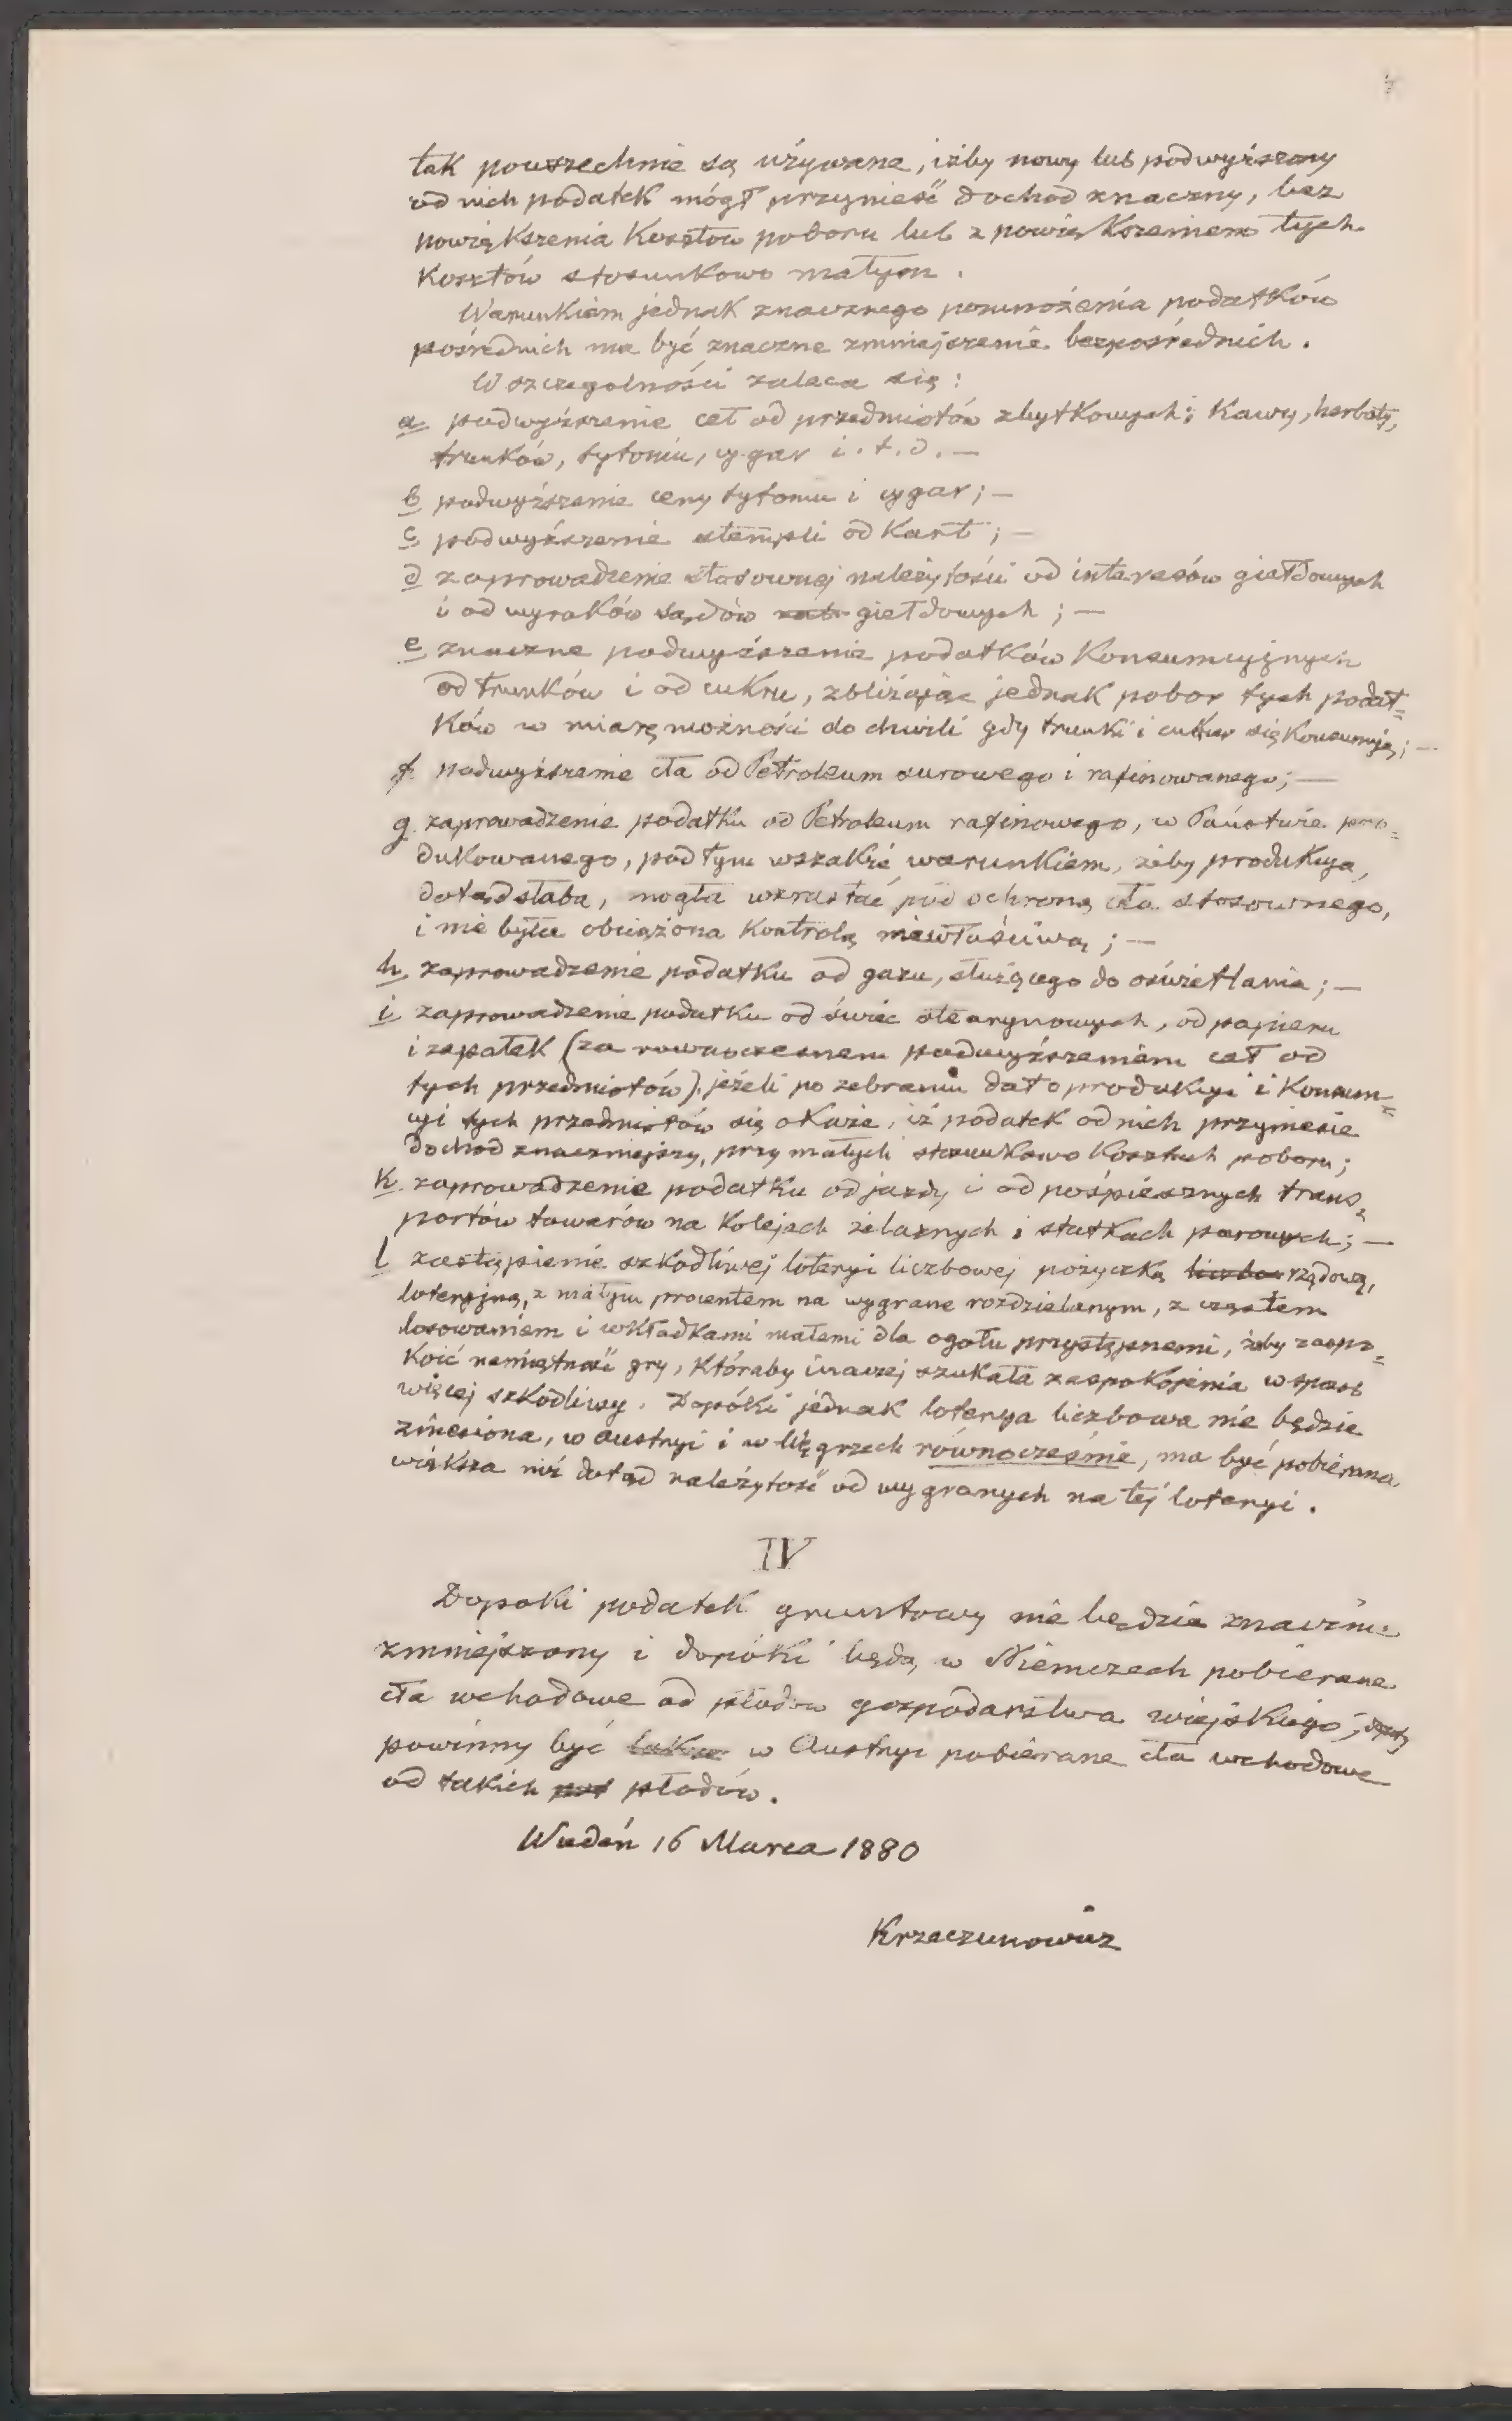 tak powszechnie są używane, iżby nowy lub podwyższony
od nich podatek mógł przynieść dochod znaczny, bez
powiększenia Kosztow poboru lub z powiększeniem tych
Kosztów stosunkowo małym.
Warunkiem jednak znacznego pomnożenia podatków
pośrednich ma być znaczne zmniejszenie bezpośrednich.
W szczegolności zaleca się:
a podwyższenie ceł od przedmiotów zbytkowych; Kawy, herbaty,
trunków, tytoniu, cygar i. t. d. —
b podwyższenie ceny tytoniu i cygar; —
c podwyższenie stempli od Kart; —
d zaprowadzenie stosownej należytości od interesów giełdowych
i od wyroków sądów giełdowych; —
e znaczne podwyższenie podatków Konsumcyjnych
od trunków i od cukru, zbliżając jednak pobor tych podat=
ków w miarę możności do chwili gdy trunki i cukier się Konsumują; —
f. podwyższenie cła od Petroleum surowego i rafinowanego; —
g. zaprowadzenie podatku od Petroleum rafinowego, w Państwie pro=
dukowanego, pod tym wszakże warunkiem, żeby produkcya,
dotąd słaba, mogła wzrastać pod ochroną cła stosownego,
i nie była obciążona Kontrolą niewłaściwą; —
h. zaprowadzenie podatku od gazu, służącego do oświetlania; —
i zaprowadzenie podatku od świec stearynowych, od papieru
i zapałek (za rownoczesnem podwyższeniem ceł od
tych przedmiotów) jeżeli po zebraniu dat o produkcyi i Konsum=
cyi tych przedmiotów się okaże, iż podatek od nich przyniesie
dochod znaczniejszy, przy małych stosunkowo Kosztach poboru;
K. zaprowadzenie podatku od jazdy i od pośpiesznych trans=
portów towarów na Kolejach żelaznych i statkach parowych; —
l zastąpienie szkodliwej loteryi liczbowej pożyczką liczbo rządową,
loteryjną, z małym procentem na wygrane rozdzielanym, z częstem
losowaniem i wkładkami małemi dla ogołu przystępnemi, żeby zaspo=
Koić namiętność gry, Któraby inaczej szukała zaspokojenia w sposb
więcej szkodliwy. Dopóki jednak loterya liczbowa nie będzie
zniesiona, w Austryi i w Węgrzech równocześnie, ma być pobierana
większa niż dotąd należytość od wygranych na tej loteryi.
IV
Dopoki podatek gruntowy nie będzie znacznie
zmniejszony i dopóki będą w Niemczech pobierane
cła wchodowe od płodow gospodarstwa wiejskiego,
powinny być także w Austryi pobierane cła wchodowe
od takich płodów.
Wiedeń 16 Marca 1880
Krzeczunowicz